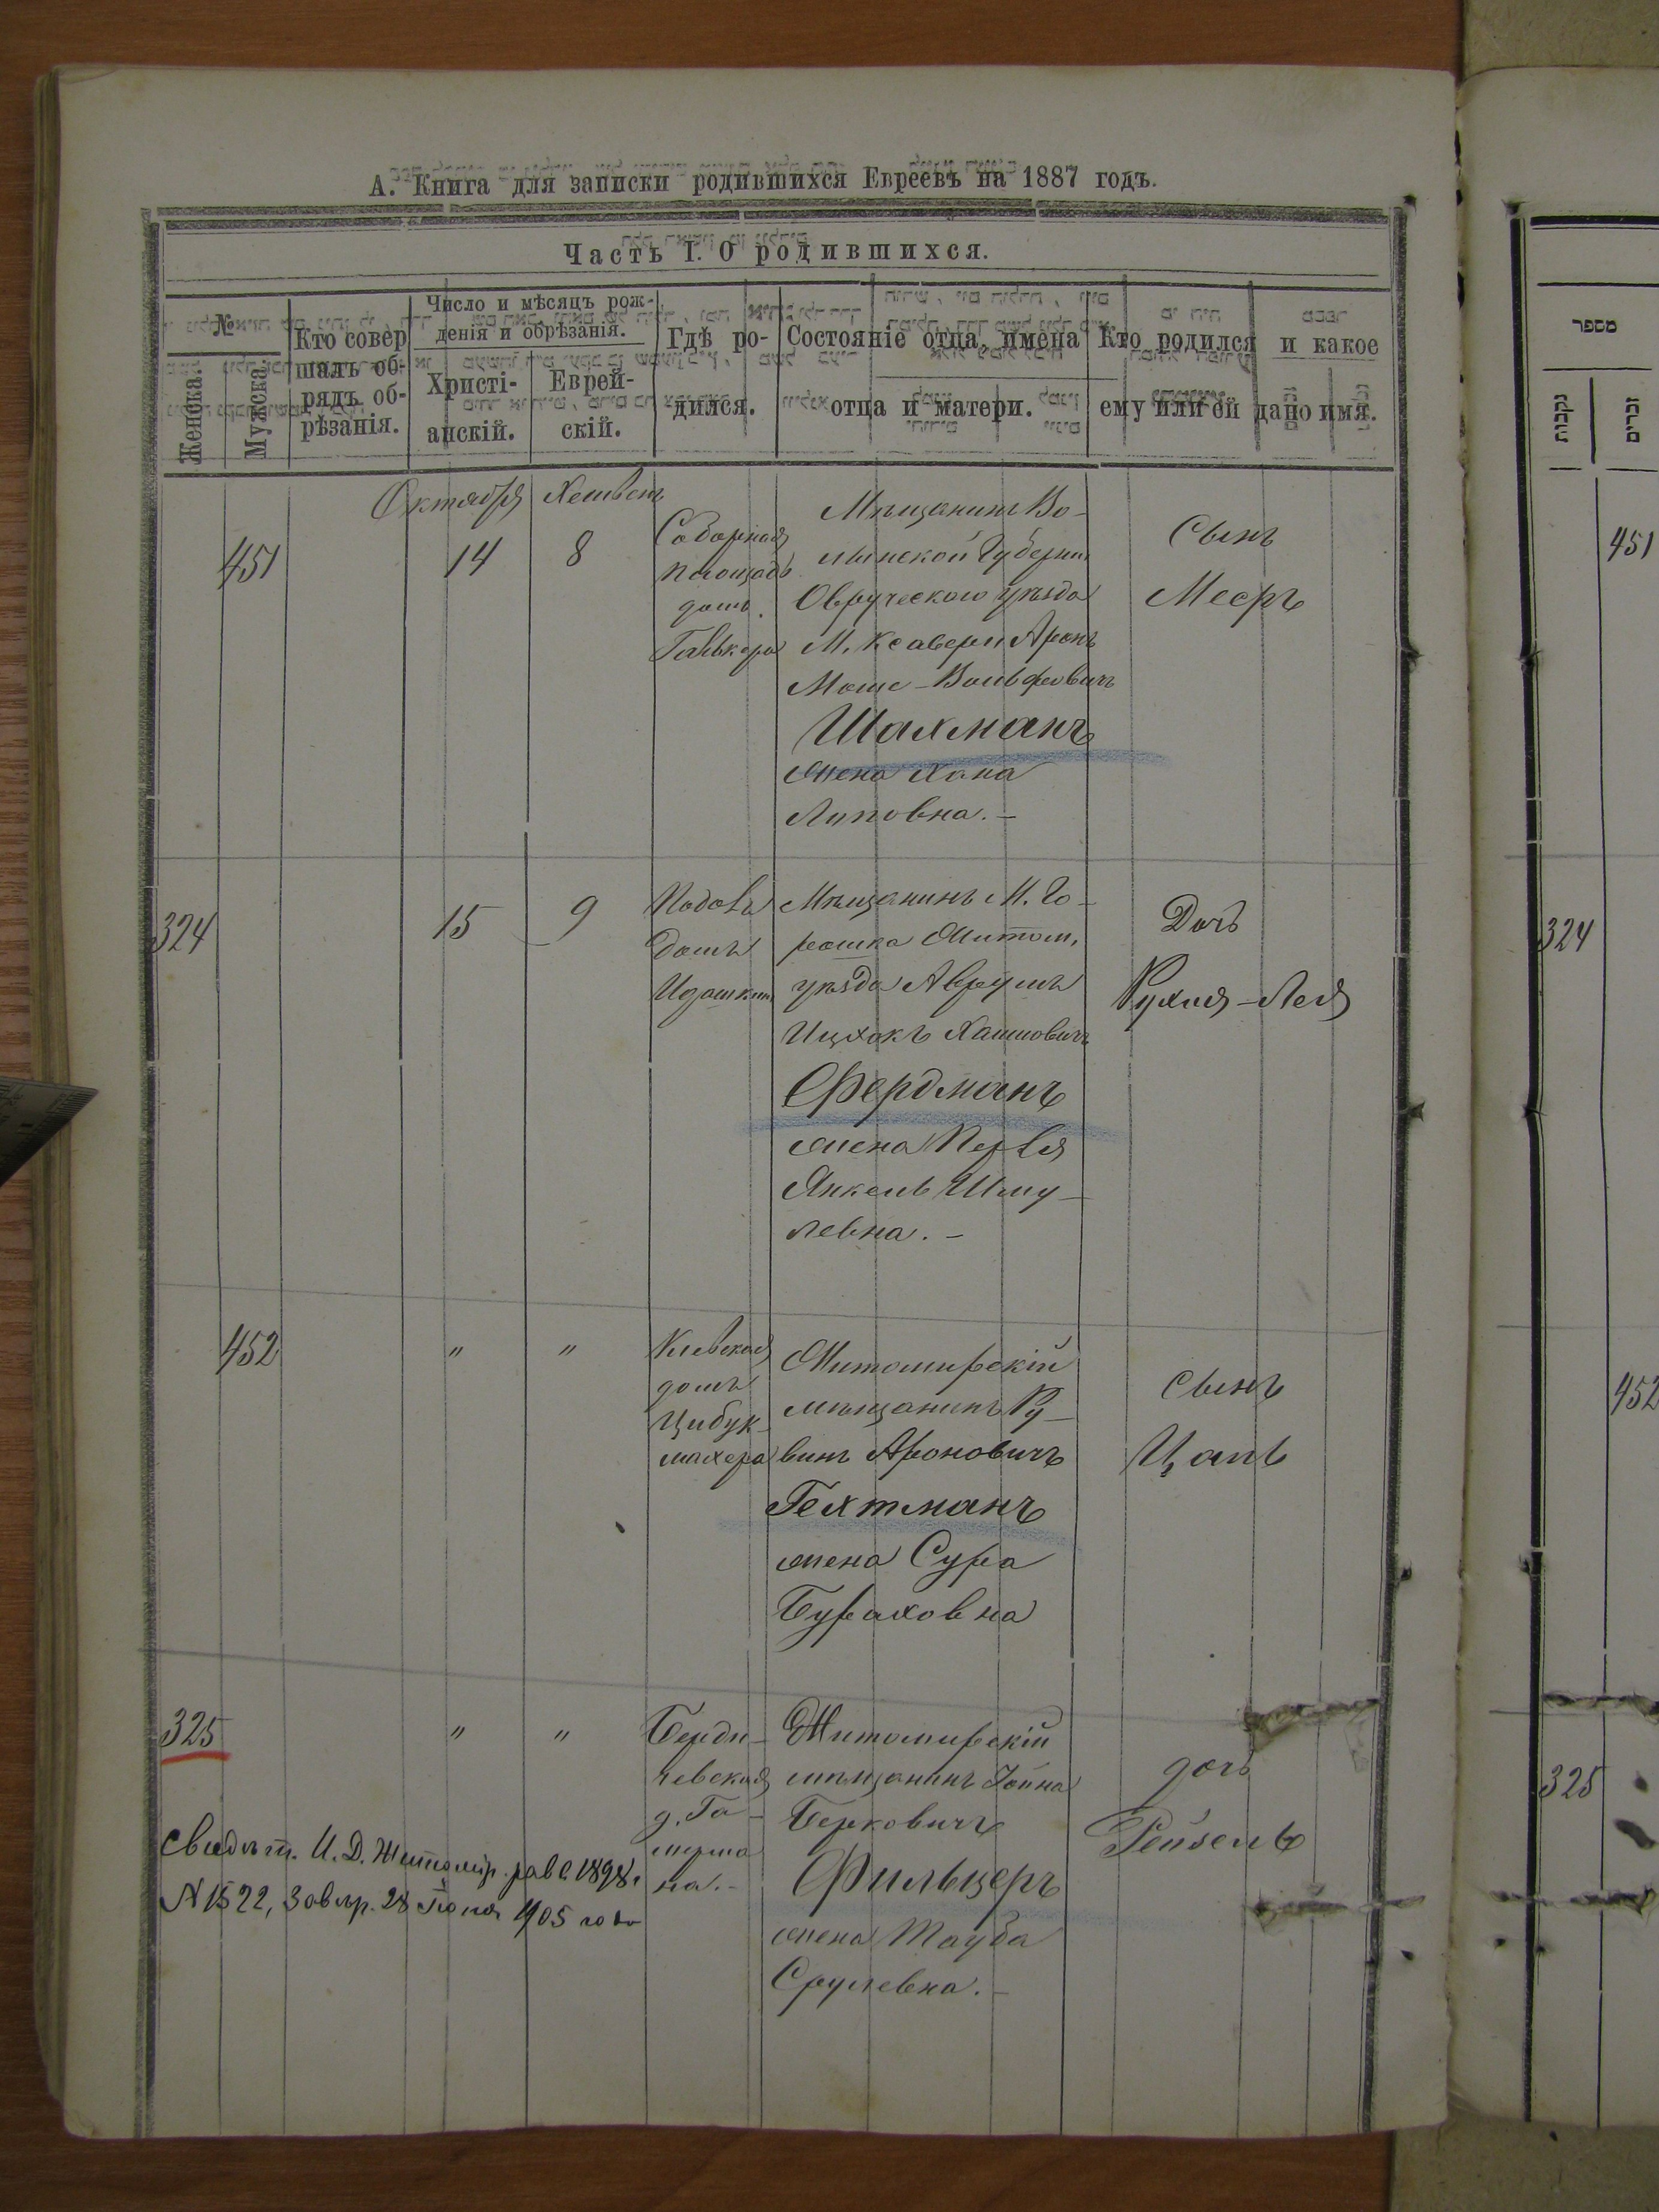 А. Книга для записки родившихся Евреевъ на 1887 годъ.
Часть I. О родившихся.
№
Женска.
Мужска.
Кто совер
шалъ об-
рядъ об-
рѣзанія.
Число и мѣсяцъ рож-
денія и обрѣзанія.
Христі-
анскій.
Еврей-
скій.
Гдѣ ро-
дился.
Состояніе отца, имена
отца и матери.
Кто родился и какое
ему или ей дано имя.
Октября Хешвенъ
451
14
8
Соборная
площадь
домъ
Мѣщанинъ Во-
лынской Губерніи
Овручскаго уѣзда
М. Ксаверы Аронъ
Моше-Вольфовичъ
Шахманъ
жена Хана
Липовна. –
Сынъ
Мееръ
324
15
9
домъ
Мѣщанинъ М. Го-
рошка Житом.
уѣзда Аврумъ
Ицхокъ Хаимовичъ
Фердманъ
жена Перля
Янкель Шму-
левна. –
Дочь
Рухля-Лея
452
"
"
Кіевская
домъ
Цибук-
махера
Житомирскій
мѣщанинъ Ру-
винъ Ароновичъ
Гехтманъ
жена Сура
Бураховна
Сынъ
Цаль
325
"
"
Берди-
чевская
д. Га-
терма
на. –
Житомирскій
мѣщанинъ Іойна
Берковичъ
Фильцеръ
жена Тауба
Срулевна. –
дочь
Рейзель
Свидѣт. И. Д. Житомір. рав. 1898.
№ 1522, 3 овгр. 28 Іюня 1905 года
מספר
נקבות
זכרים
451
324
452
325